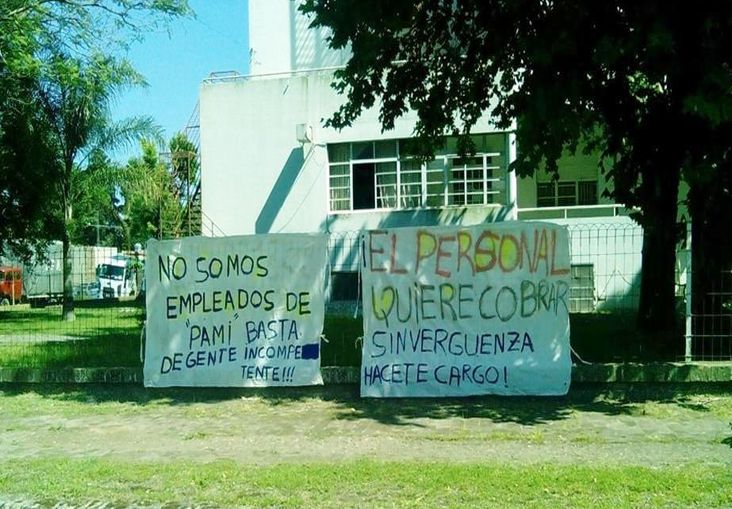 NO SOMOS
EMPLEADOS DE
"PAMI" BASTA
DE GENTE INCOMPE
TENTE!!!
¡EL PERSONAL
QUIERE COBRAR
SINVERGUENZA
HACETE CARGO!